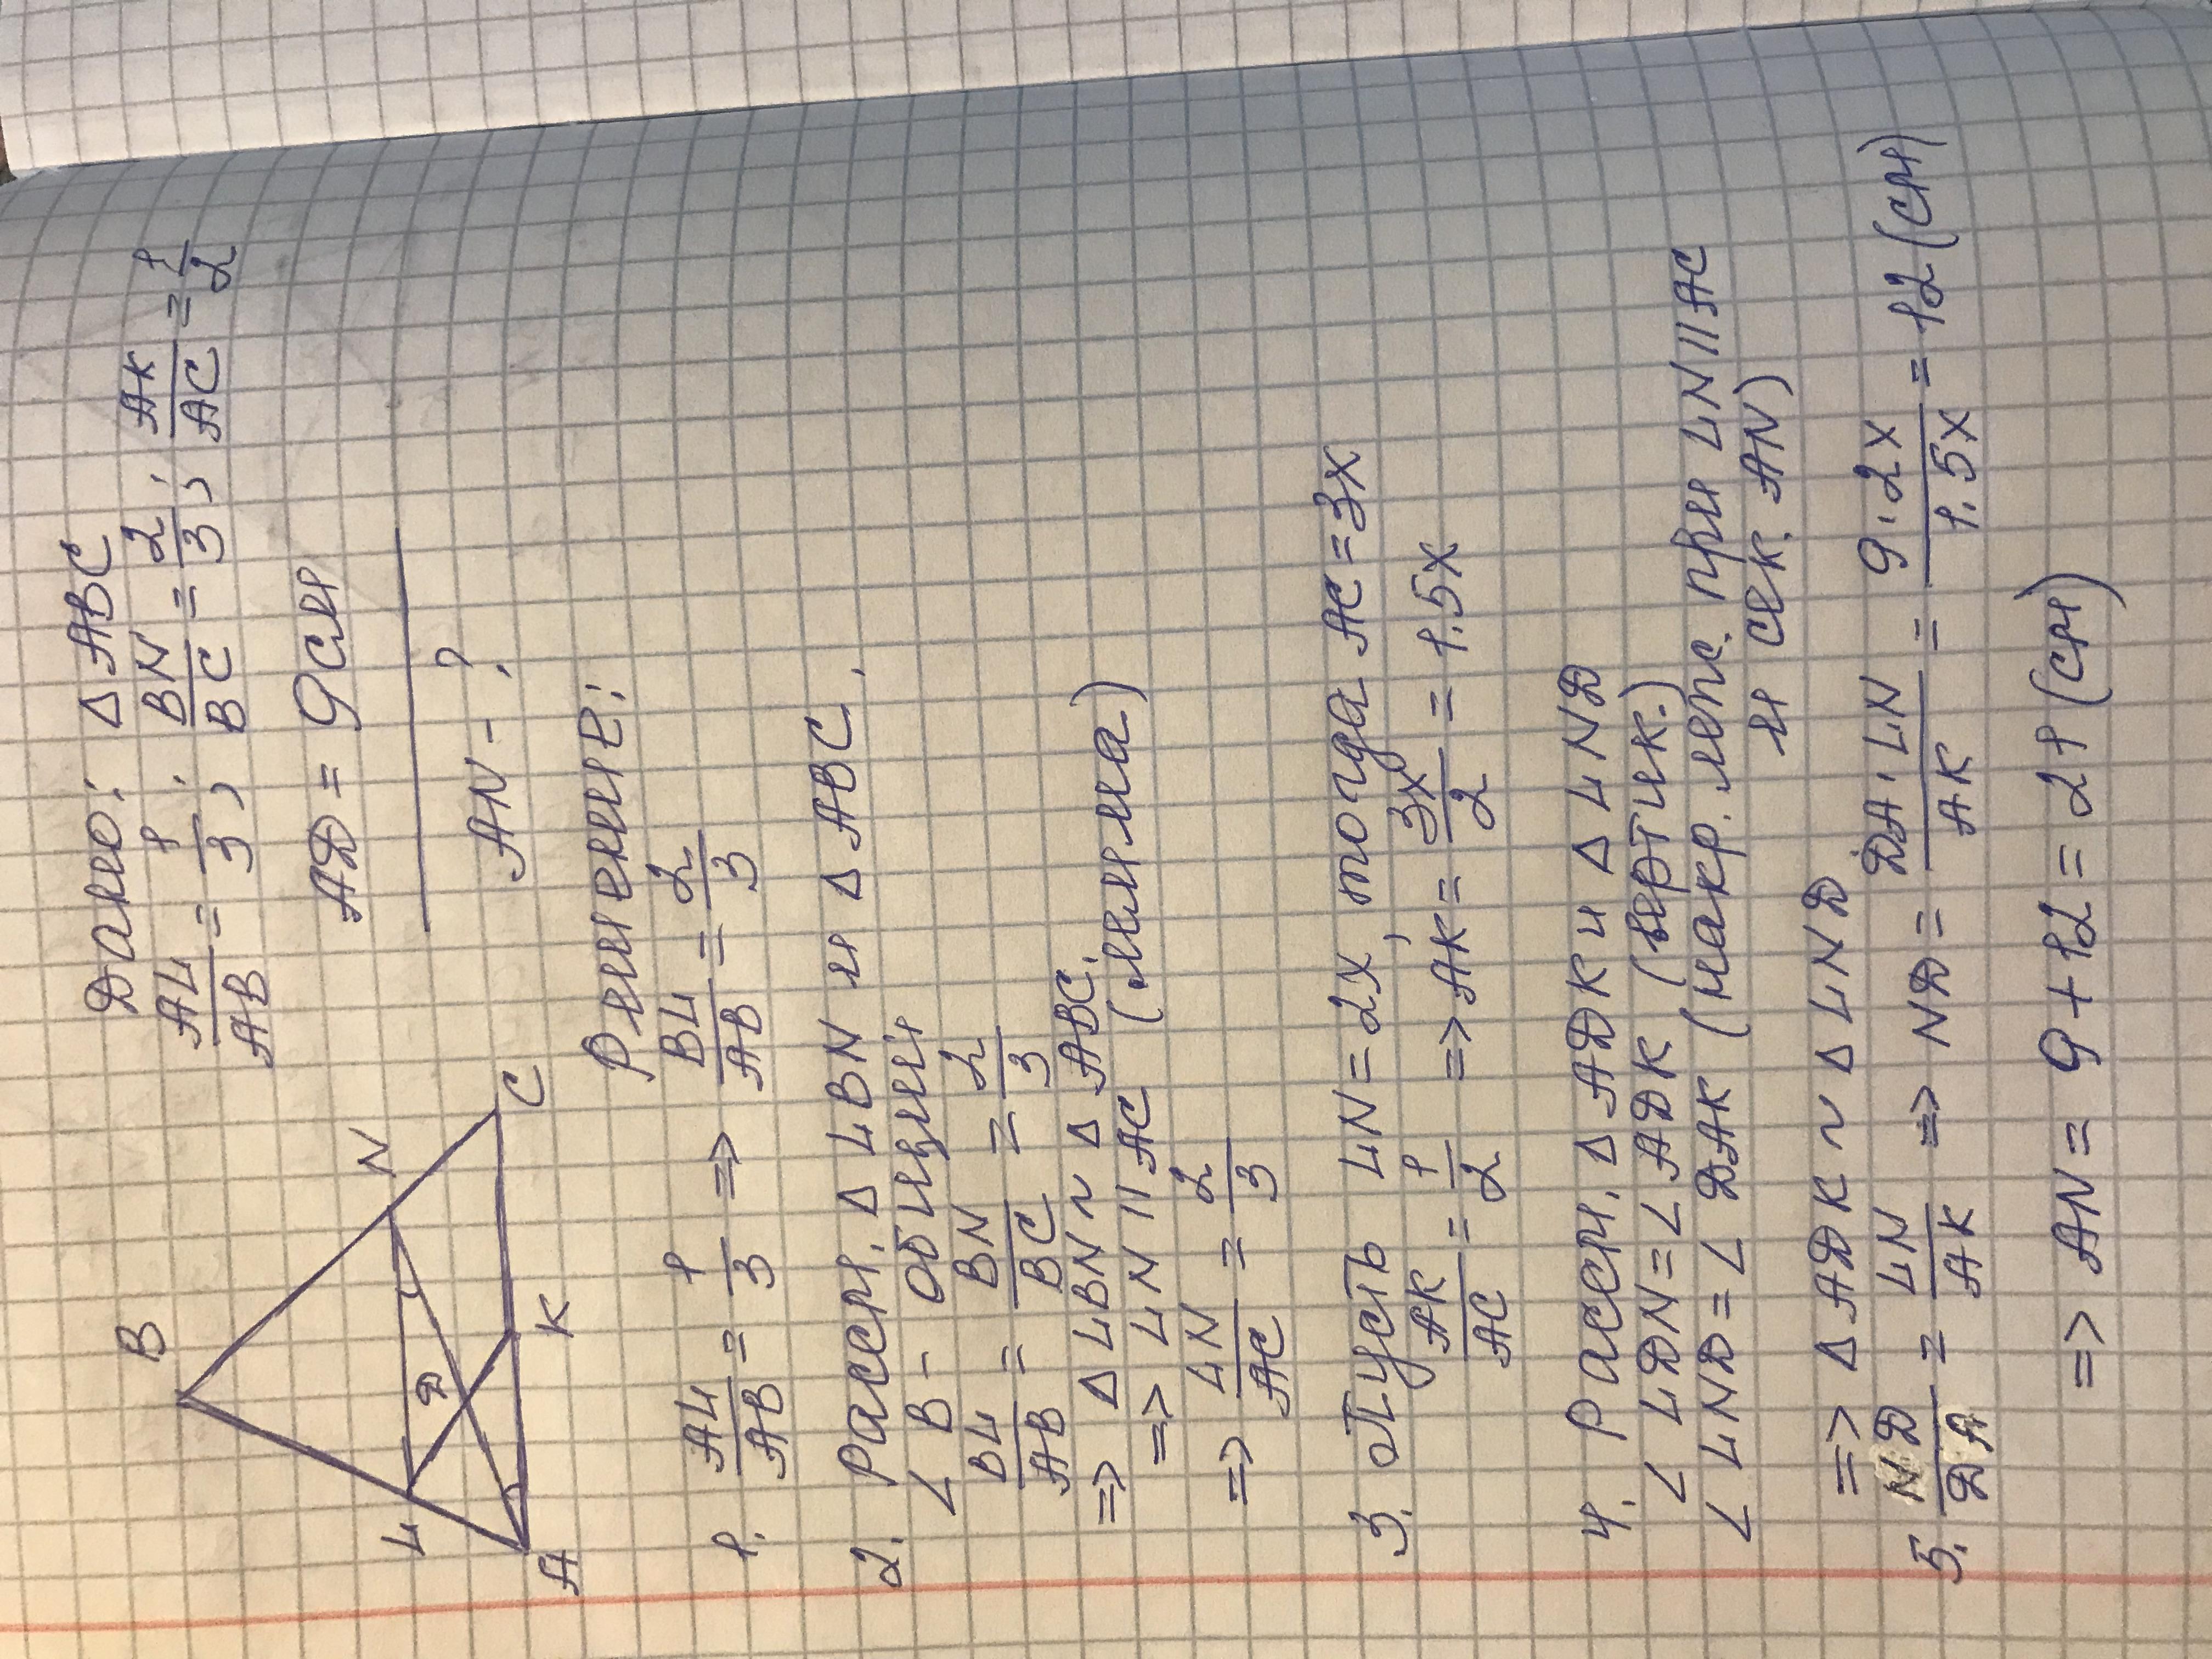 B
L
N
D
A
K
C
Дано: Δ ABC
AL/AB = 1/3; BN/BC = 2/3; AK/AC = 1/2
AD = 9 см
AN - ?
Решение:
1. AL/AB = 1/3 => BL/AB = 2/3
2. Рассм. Δ LBN и Δ ABC.
∠ B - общий
BL/AB = BN/BC = 2/3
=> Δ LBN ~ Δ ABC.
=> LN || AC (лемма)
=> LN/AC = 2/3
3. Пусть LN = 2x, тогда AC = 3x
AK/AC = 1/2 => AK = 3x/2 = 1.5x
4. Рассм. Δ ADK и Δ LND
∠ LDN = ∠ ADK (вертик.)
∠ LND = ∠ DAK (накр. леж. при LN || AC
и сек. AN)
=> Δ ADK ~ Δ LND
5. ND/DA = LN/AK => ND = DA · LN/AK = 9 · 2x/1.5x = 12 (см)
=> AN = 9 + 12 = 21 (см)